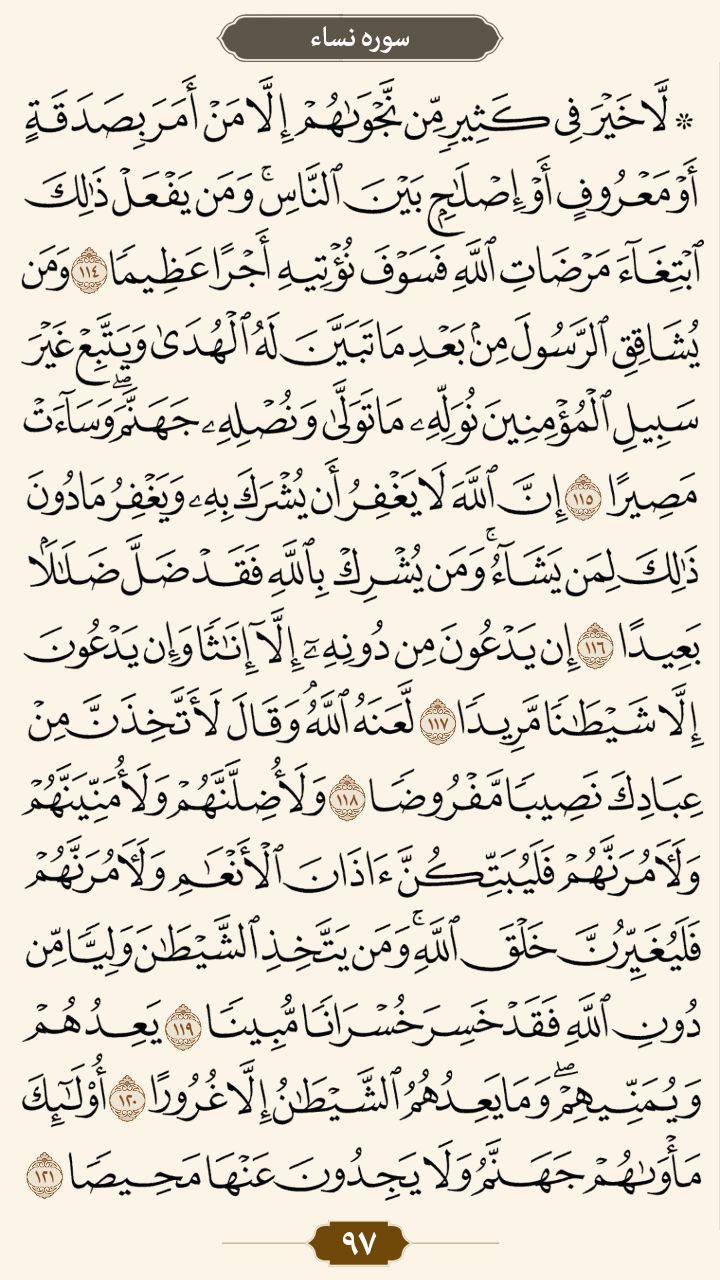 سوره نساء
۞ لَّا خَيْرَ فِي كَثِيرٍ مِّن نَّجْوَىٰهُمْ إِلَّا مَنْ أَمَرَ بِصَدَقَةٍ
أَوْ مَعْرُوفٍ أَوْ إِصْلَٰحٍۭ بَيْنَ ٱلنَّاسِۚ وَمَن يَفْعَلْ ذَٰلِكَ
ٱبْتِغَآءَ مَرْضَاتِ ٱللَّهِ فَسَوْفَ نُؤْتِيهِ أَجْرًا عَظِيمًا ١١٤ وَمَن
يُشَاقِقِ ٱلرَّسُولَ مِنۢ بَعْدِ مَا تَبَيَّنَ لَهُ ٱلْهُدَىٰ وَيَتَّبِعْ غَيْرَ
سَبِيلِ ٱلْمُؤْمِنِينَ نُوَلِّهِۦ مَا تَوَلَّىٰ وَنُصْلِهِۦ جَهَنَّمَۖ وَسَآءَتْ
مَصِيرًا ١١٥ إِنَّ ٱللَّهَ لَا يَغْفِرُ أَن يُشْرَكَ بِهِۦ وَيَغْفِرُ مَا دُونَ
ذَٰلِكَ لِمَن يَشَآءُۚ وَمَن يُشْرِكْ بِٱللَّهِ فَقَدْ ضَلَّ ضَلَٰلًۢا
بَعِيدًا ١١٦ إِن يَدْعُونَ مِن دُونِهِۦٓ إِلَّآ إِنَٰثًا وَإِن يَدْعُونَ
إِلَّا شَيْطَٰنًا مَّرِيدًا ١١٧ لَّعَنَهُ ٱللَّهُۘ وَقَالَ لَأَتَّخِذَنَّ مِنْ
عِبَادِكَ نَصِيبًا مَّفْرُوضًا ١١٨ وَلَأُضِلَّنَّهُمْ وَلَأُمَنِّيَنَّهُمْ
وَلَءَامُرَنَّهُمْ فَلَيُبَتِّكُنَّ ءَاذَانَ ٱلْأَنْعَٰمِ وَلَءَامُرَنَّهُمْ
فَلَيُغَيِّرُنَّ خَلْقَ ٱللَّهِۚ وَمَن يَتَّخِذِ ٱلشَّيْطَٰنَ وَلِيًّا مِّن
دُونِ ٱللَّهِ فَقَدْ خَسِرَ خُسْرَانًا مُّبِينًا ١١٩ يَعِدُهُمْ
وَيُمَنِّيهِمْۖ وَمَا يَعِدُهُمُ ٱلشَّيْطَٰنُ إِلَّا غُرُورًا ١٢٠ أُو۟لَٰٓئِكَ
مَأْوَىٰهُمْ جَهَنَّمُ وَلَا يَجِدُونَ عَنْهَا مَحِيصًا ١٢١
٩٧